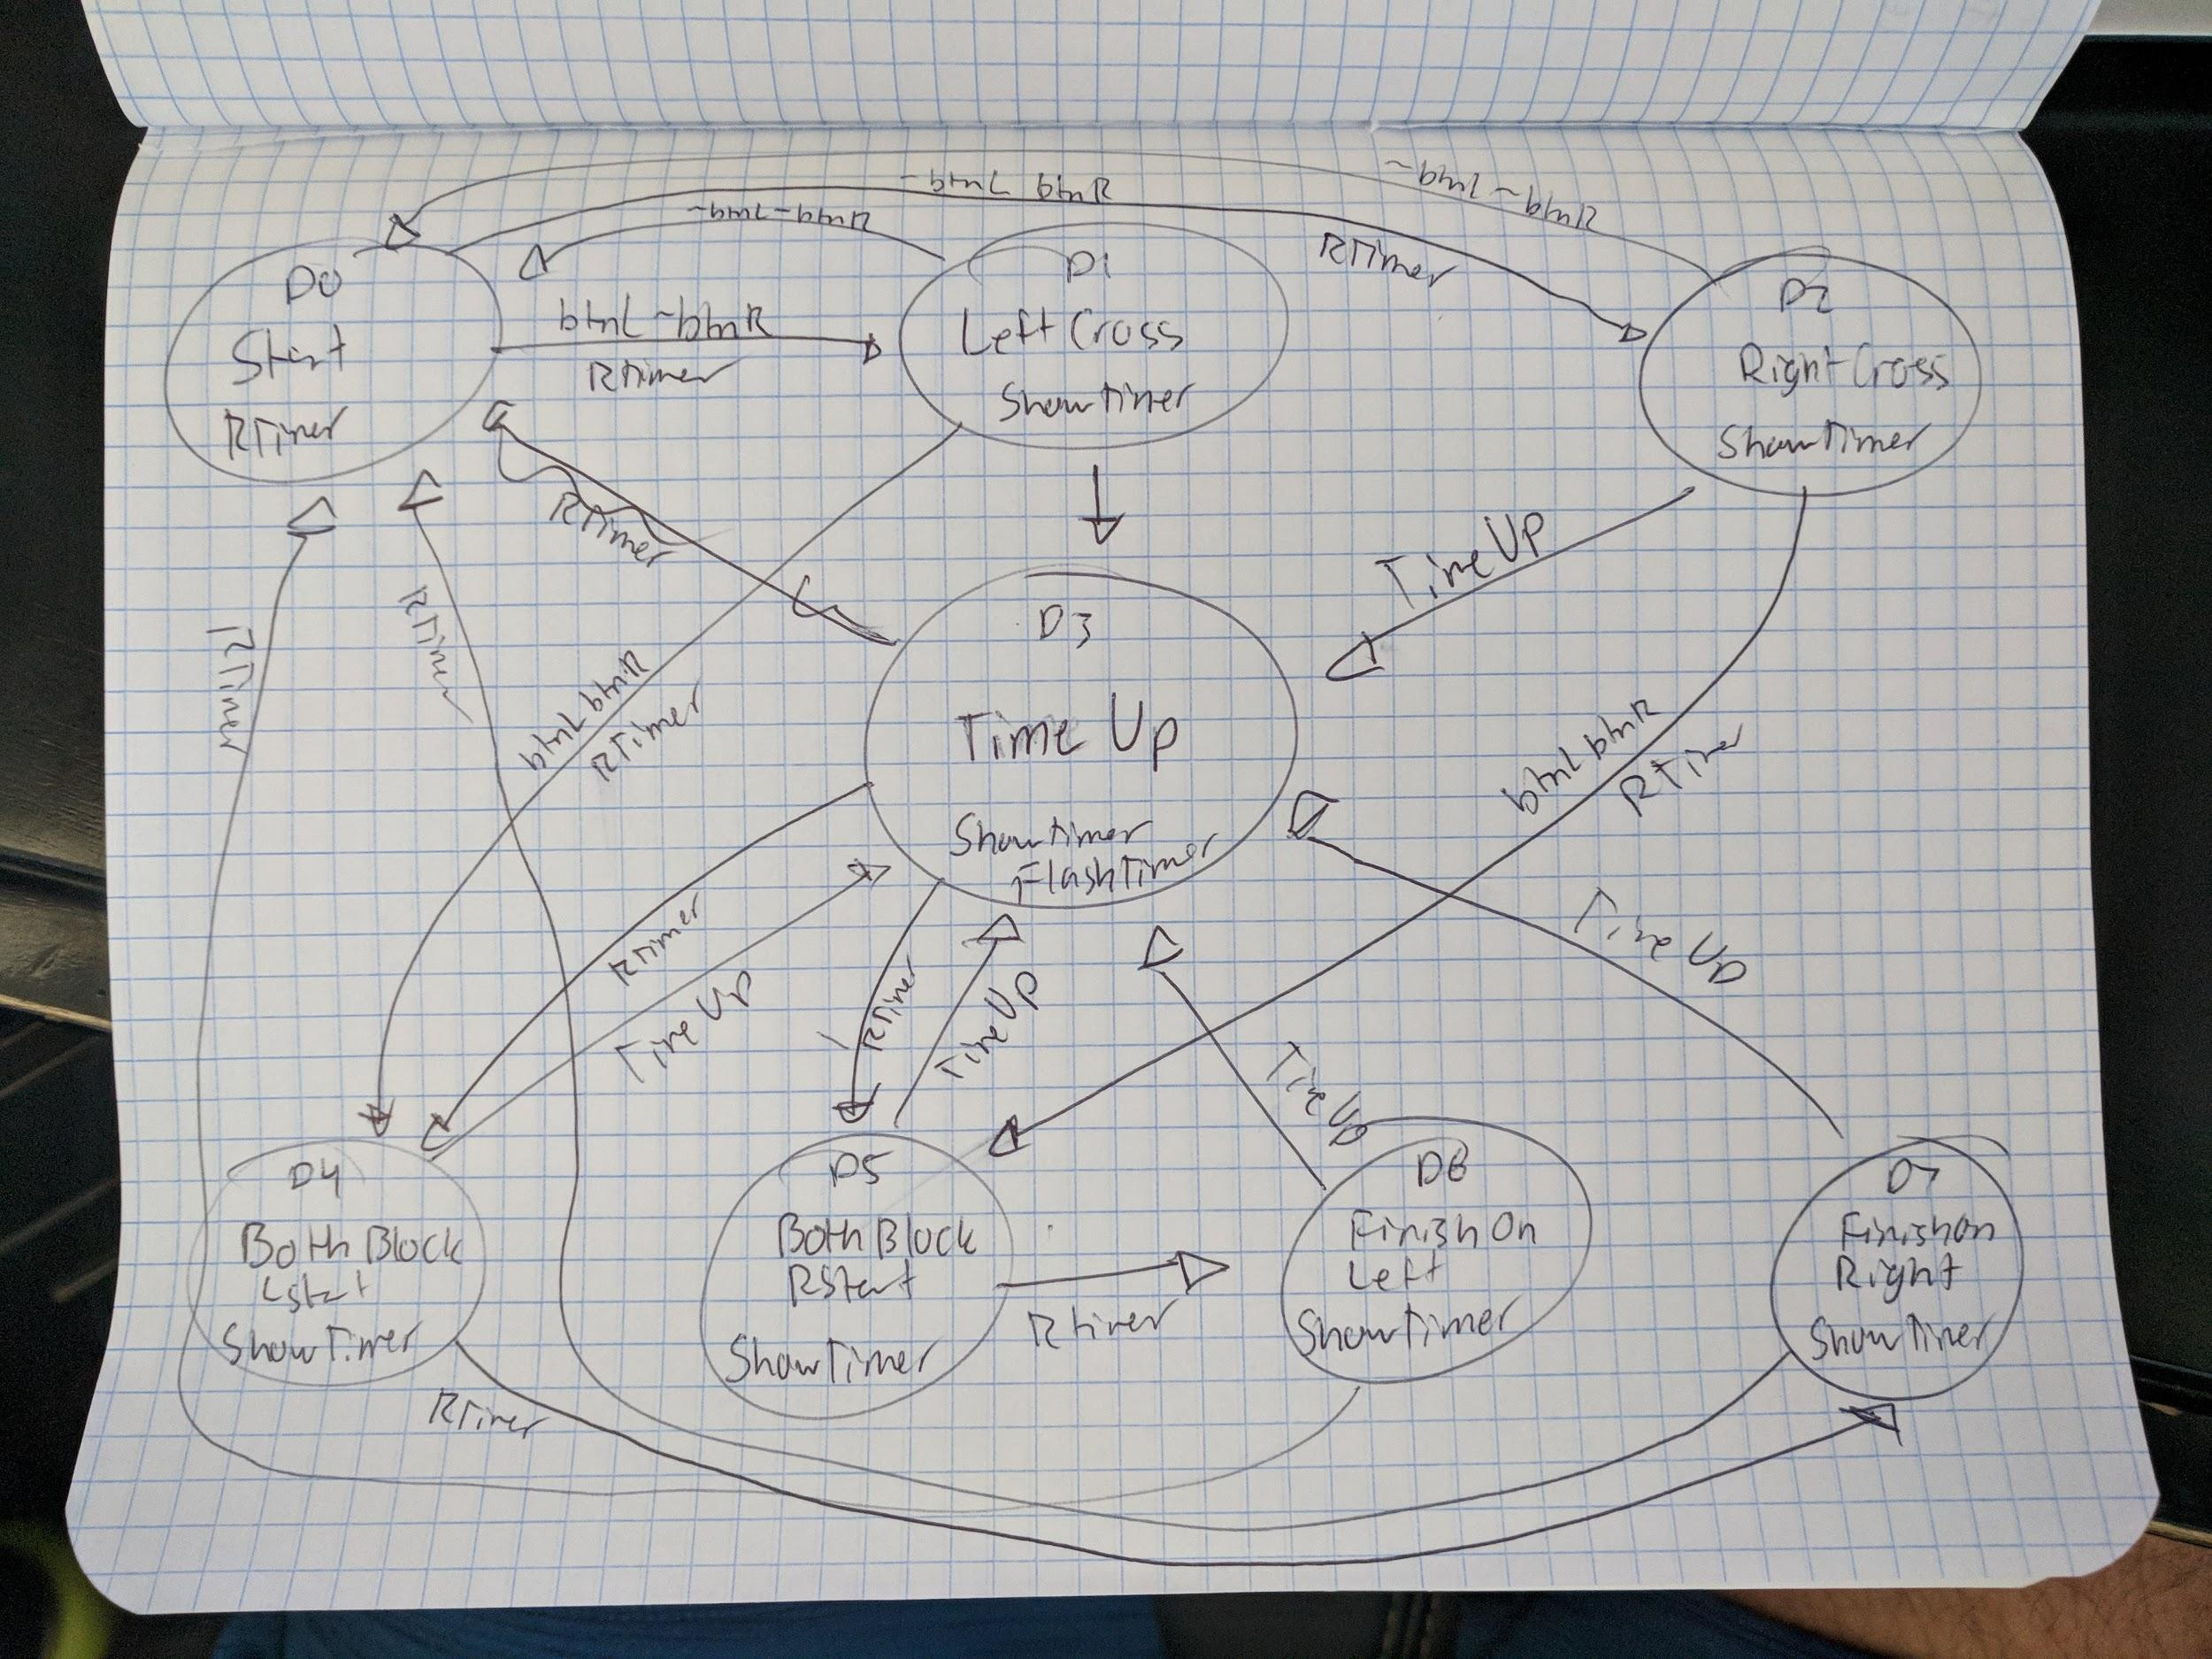 ~btnL btnR
~btnL ~btnR
~btnL ~btnR
RTimer
D0
Start
RTimer
btnL ~btnR
RTimer
D1
Left Cross
Show Timer
D2
Right Cross
Show Timer
RTimer
Time Up
RTimer
RTimer
btnL btnR
RTimer
D3
Time Up
Show Timer
Flash Timer
btnL btnR
RTimer
RTimer
Time Up
RTimer
Time Up
Time Up
Time Up
D4
Both Block
LStart
Show Timer
D5
Both Block
RStart
Show Timer
RTimer
D6
Finish On
Left
Show Timer
D7
Finish On
Right
Show Timer
RTimer